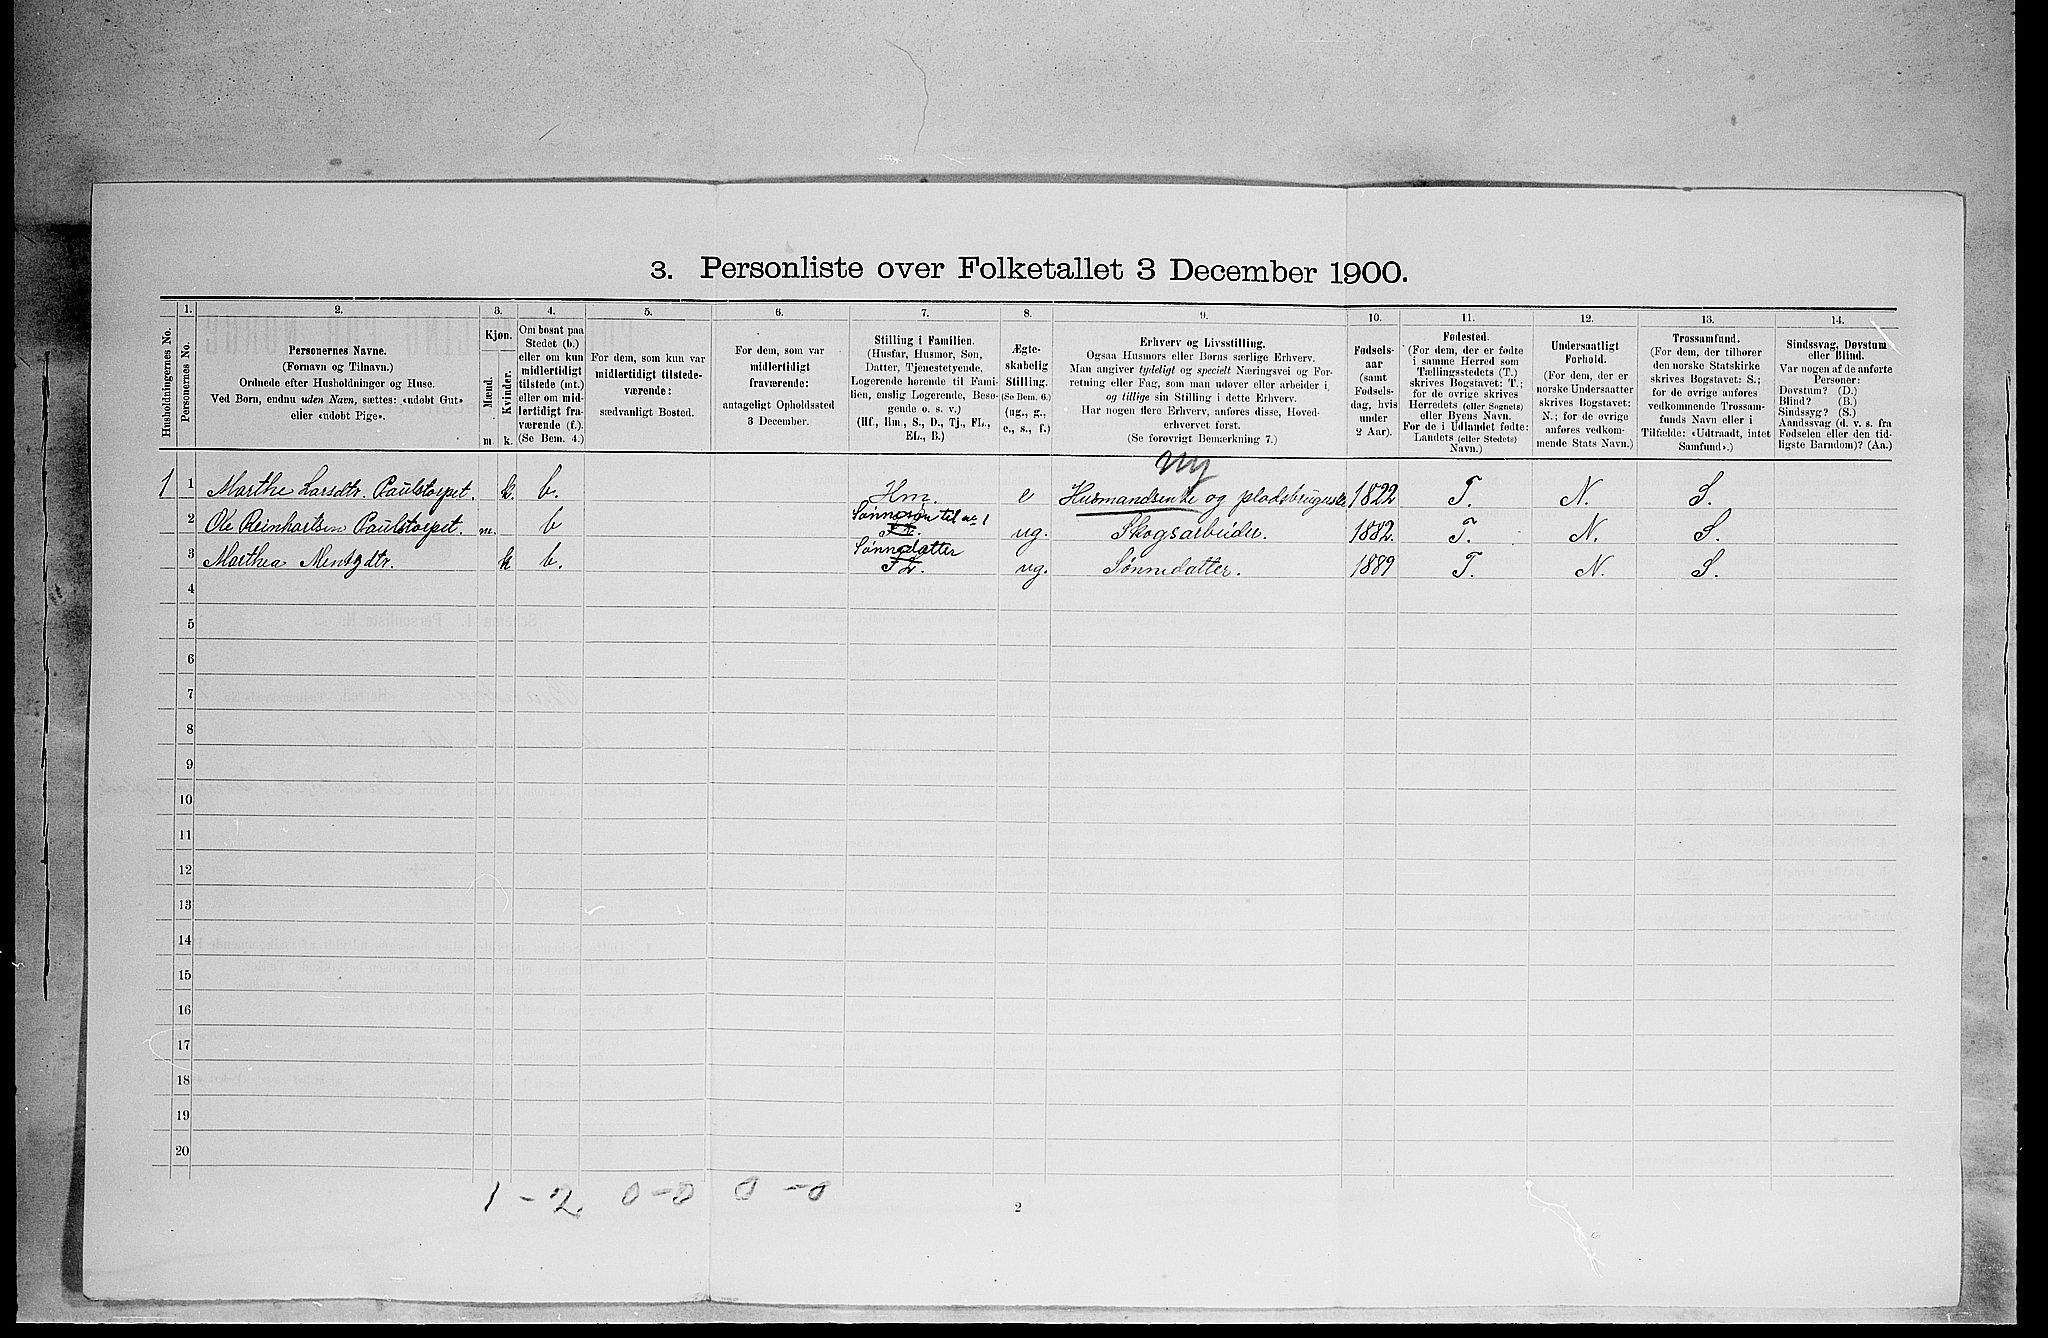 3. Personliste over Folketallet 3 December 1900.
1. 2. 3. 4. 5. 6. 7. 8. 9. 10. 11. 12. 13. 14.
Husholdningernes No.
Personernes No.
Personernes Navne.
(Fornavn og Tilnavn.)
Ordnede efter Husholdninger og Huse.
Ved Børn, endnu uden Navn, sættes: «udøbt Gut»
eller «udøbt Pige».
Kjøn.
Mænd.
Kvinder.
m. k.
Om bosat paa
Stedet (b.)
eller om kun
midlertidigt
tilstede (mt.)
eller om mid-
lertidigt fra-
værende (f.).
(Se Bem. 4.)
For dem, som kun var
midlertidigt tilstede-
værende:
sædvanligt Bosted.
For dem, som var
midlertidigt
fraværende:
antageligt Opholdssted
3 December.
Stilling i Familien.
(Husfar, Husmor, Søn,
Datter, Tjenestetyende,
Logerende hørende til Fami-
lien, enslig Logerende, Besø-
gende o. s. v.)
(Hf., Hm., S., D., Tj., FL.,
EL., B.)
Ægte-
skabelig
Stilling.
(Se Bem. 6.)
(ug., g.,
e., s., f.)
Erhverv og Livsstilling.
Ogsaa Husmors eller Børns særlige Erhverv.
Man angiver tydeligt og specielt Næringsvei og For-
retning eller Fag, som man udøver eller arbeider i,
og tillige sin Stilling i dette Erhverv.
Har nogen flere Erhverv, anføres disse, Hoved-
erhvervet først.
(Se forøvrigt Bemærkning 7.)
Fødsels-
aar
(samt
Fødsels-
dag, hvis
under
2 Aar).
Fødested.
(For dem, der er fødte
i samme Herred som
Tællingsstedets (T.)
skrives Bogstavet: T.;
for de øvrige skrives
Herredets (eller Sognets)
eller Byens Navn.
For de i Udlandet fødte:
Landets (eller Stedets)
Navn.)
Undersaatligt
Forhold.
(For dem, der er
norske Undersaatter
skrives Bogstavet:
N.; for de øvrige
anføres vedkom-
mende Stats Navn.)
Trossamfund.
(For dem, der tilhører
den norske Statskirke
skrives Bogstavet: S.;
for de øvrige anføres
vedkommende Trossam-
funds Navn eller i
Tilfælde: «Udtraadt, intet
Samfund».)
Sindssvag, Døvstum
eller Blind.
Var nogen af de anførte
Personer:
Døvstum? (D.)
Blind? (B.)
Sindssyg? (S.)
Aandssvag (d. v. s. fra
Fødselen eller den tid-
ligste Barndom)? (Aa.)
1 1 Marthe Larsdtr. Paulstorpet. k. b. Hm. e Husmandsenke og pladsbrugerske 1822 T. N. S.
2 Ole Reinhartsen Paulstorpet. m. b Sønnesøn til no 1 ug. Skogsarbeider. 1882. T. N. S.
3 Marthea Mentzdtr. k b. Sønnedatter ug. Sønnedatter. 1889 T. N. S.
4
5
6
7
8
9
10
11
12
13
14
15
16
17
18
19
20
1 - 2 0 - 0 0 - 0
2